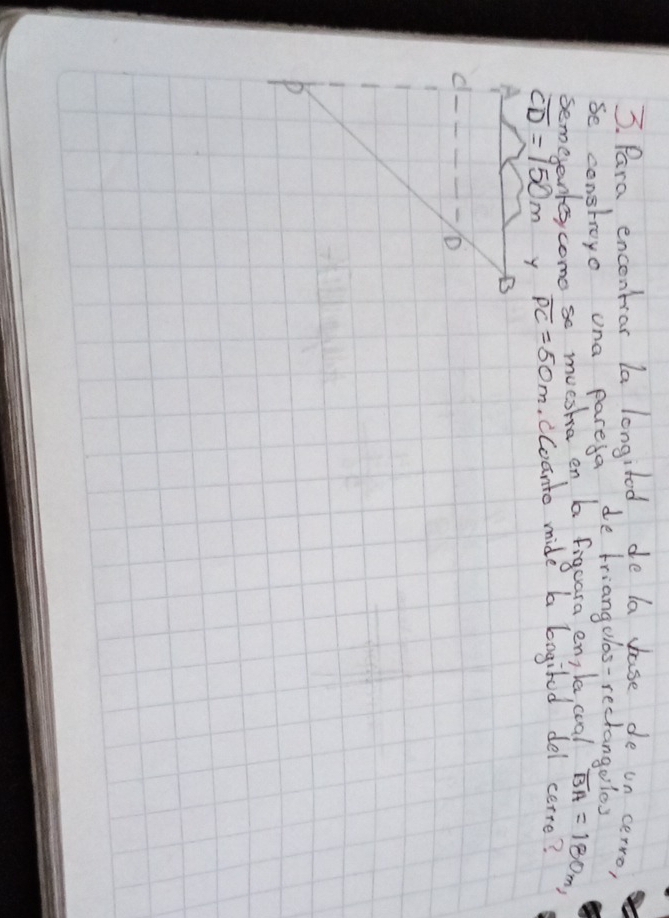 3. Para encontrar la longitud de la vase de un cerro,
se construyo una pareja de triangulos-rectangulos
semejantes, como se muestra en la figuara en, la cual BA = 180m,
CD = 150m y PC = 50m. ¿Cuanto mide la longitud del cerro?
A B
C D
P